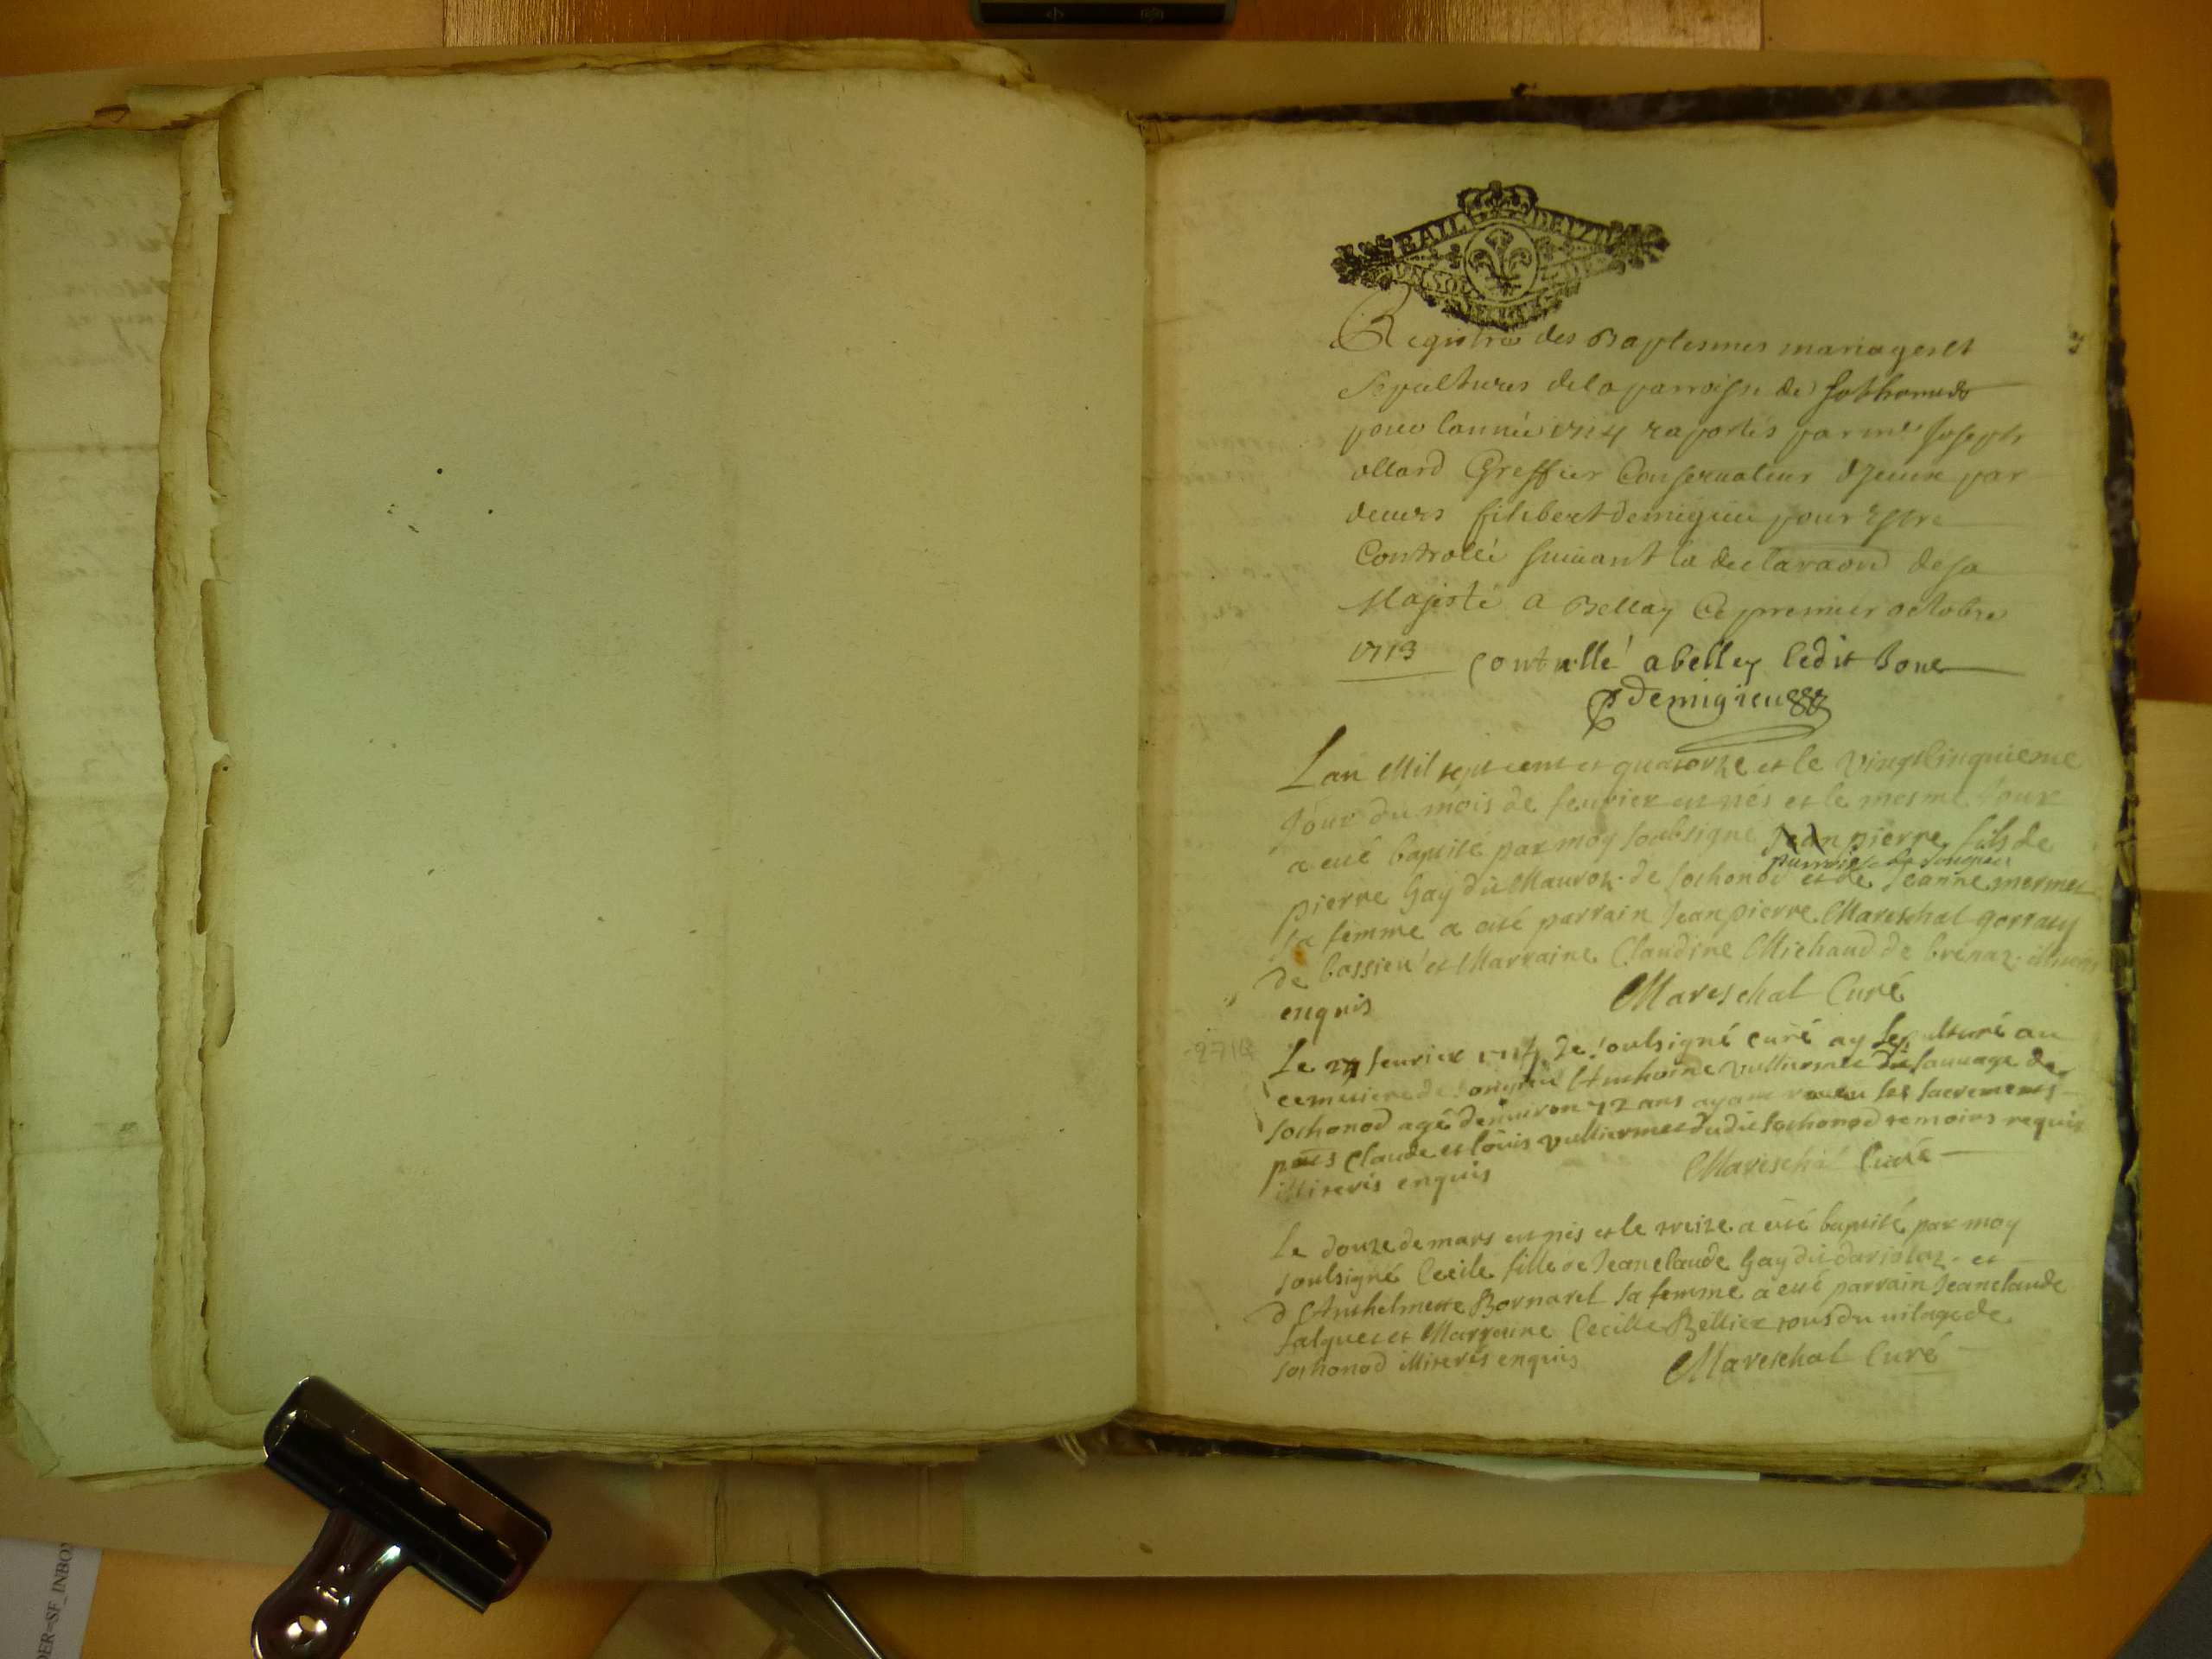 BAIL DE
Registre des Baptesmes mariages et
Sepultures de la parroisse de Sothonod
pour l'année 1714 raportés par me Joseph
allard Greffier Conservateur
deuers filibert demigieu pour estre
Controllé suiuant la declaraon de sa
Majesté a Bellay Ce premier octobre
1713 Controllé a belley ledit Jour
demigieu
Lan Mil sept cent et quatorze et le vingtcinquieme
Jour du mois de feurier est nés et le mesme Jour
a eté baptisé par moy soubsigné Jean pierre fils de
parroisse de songieu
pierre Gay dit Mauroz de sothonod et de Jeanne mermet
sa femme a eté parrain Jean pierre Mareschal
de bassieu et Marraine Claudine Michaud de brenaz
enquis Mareschal Curé
Le feurier 1714 Je soubsigné curé ay sepulturé au
cemetiere de songieu Anthoine vulliermet dit sauuage de
sothonod agé denuiron 72 ans ayant receu ses sacrements
pnts Claude et louis vulliermet dudit sothonod temoins requis
illiterés enquis Mareschal Curé
Le douze de mars est née et le treize a eté baptisé par moy
soubsigné Cecile fille de Jean claude Gay dit et
d'Anthelmette Bornarel sa femme a eté parrain Jean claude
falquet et Marraine Cecille Bellier tous du vilage de
sothonod illiterés enquis Mareschal Curé